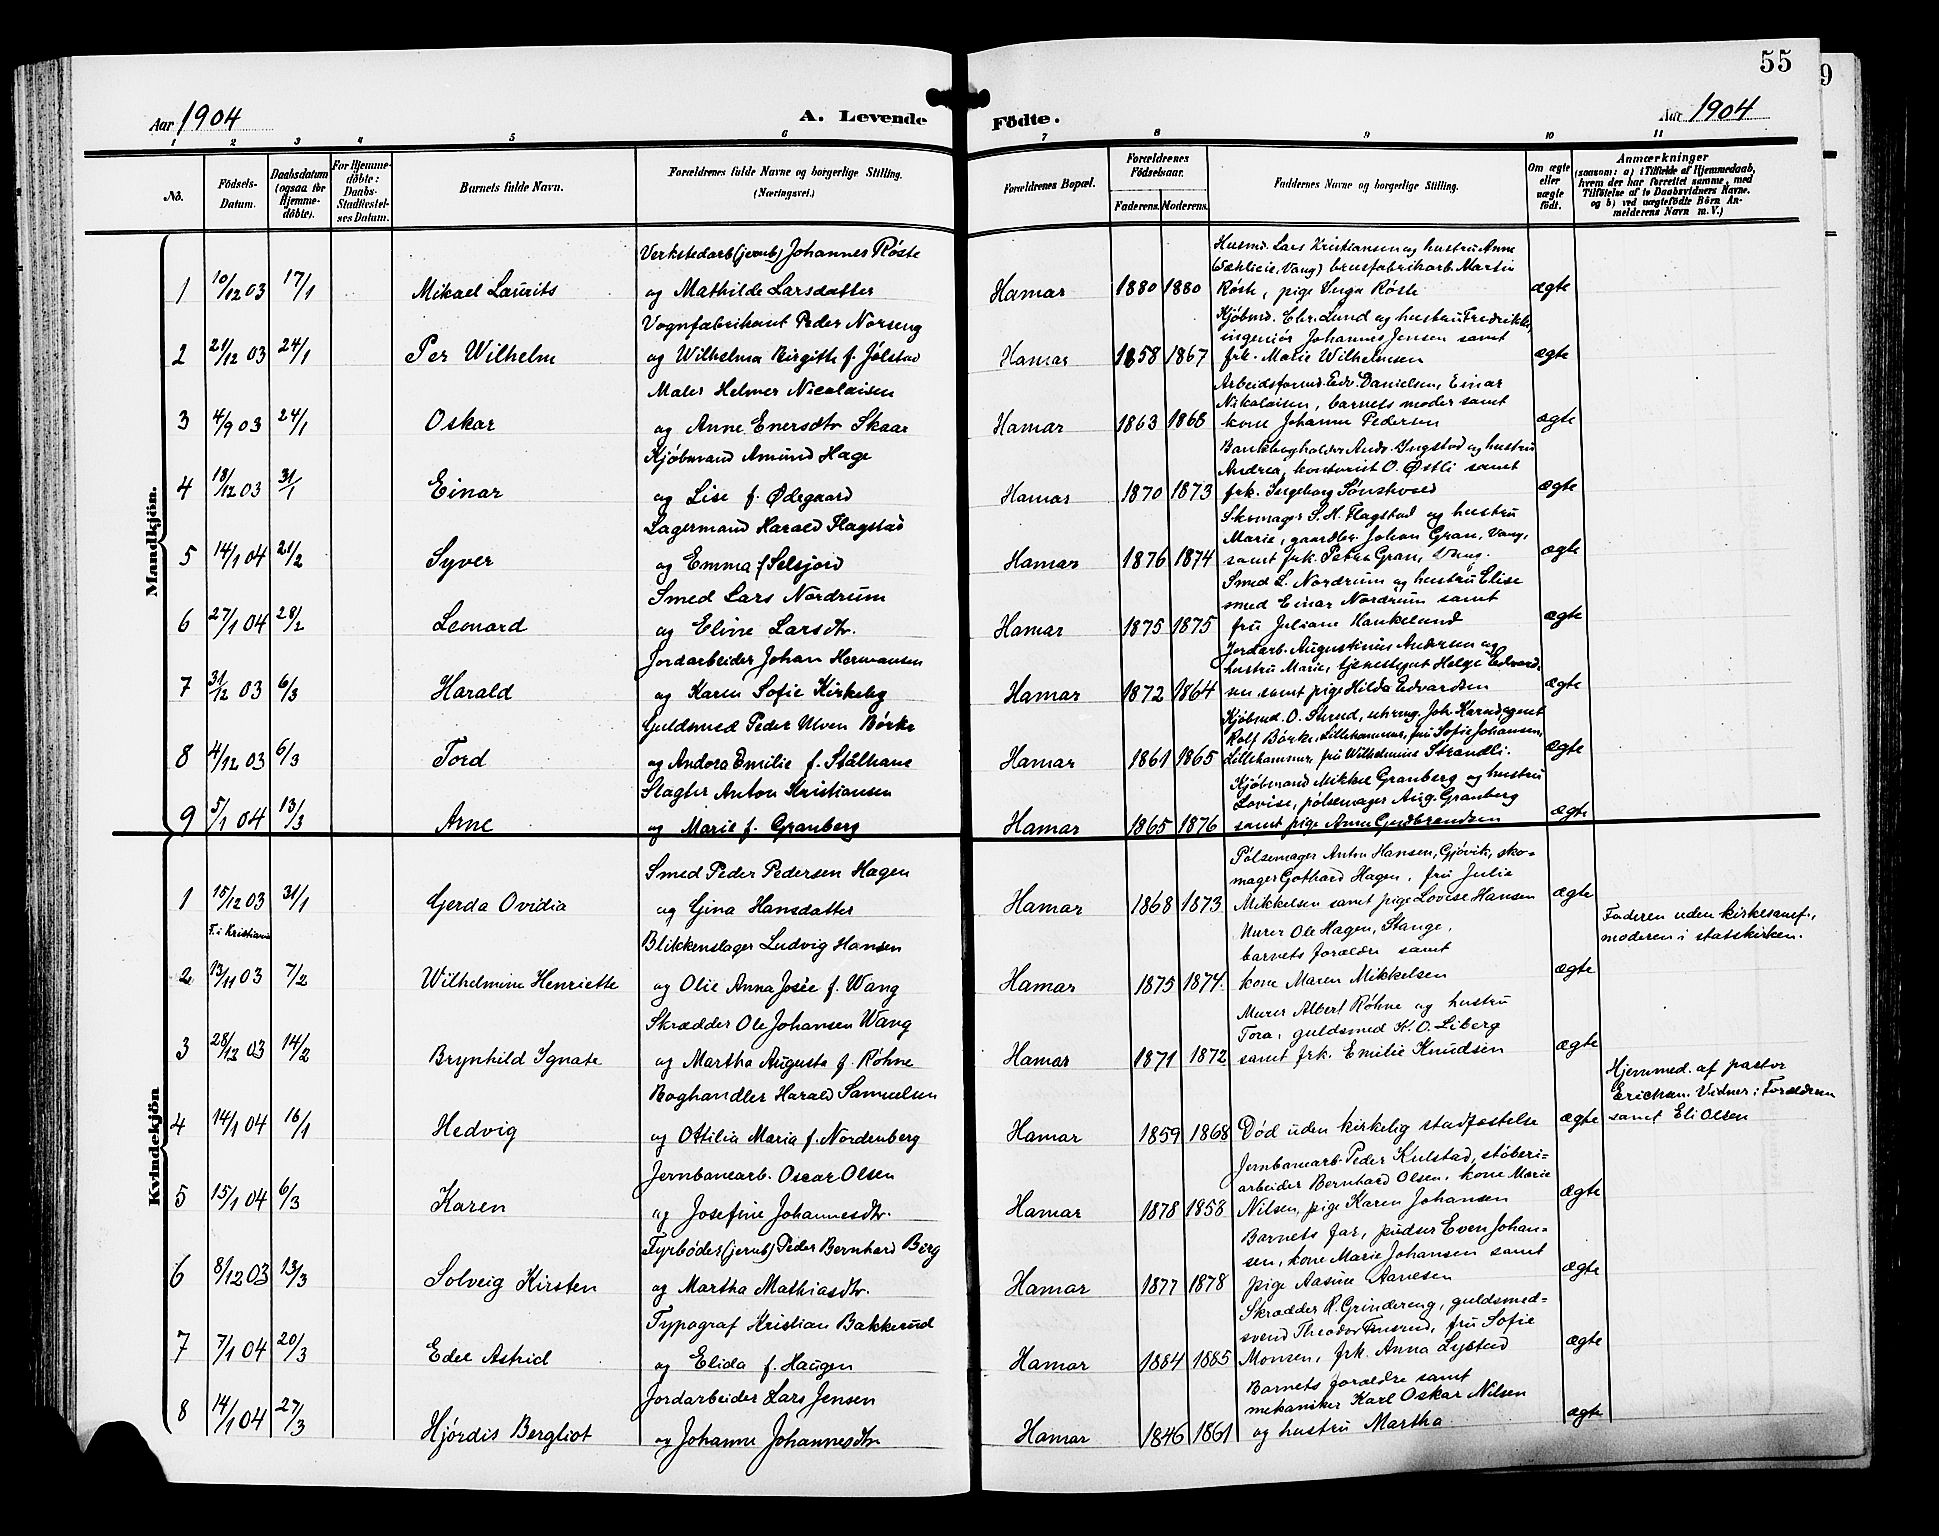 55
9
Aar 1904
A. Levende Födte.
Aar 1904
1 2 3 4 5 6 7 8 9 10 11
No.
Födsels-
Datum.
Daabsdatum
(ogsaa for
Hjemme-
döbte).
For Hjemme-
döbte:
Daabs-
Stadfæstel-
ses Datum.
Barnets fulde Navn.
Forældrenes fulde Navne og borgerlige Stilling.
(Næringsvei.)
Forældrenes Bopæl.
Forældrenes
Födselsaar.
Faderens. Moderens.
Faddernes Navne og borgerlige Stilling.
Om ægte
eller
uægte
födt.
Anmærkninger
(saasom: a) i Tilfælde af Hjemmedaab,
hvem der har forrettet samme, med
Tilföielse af to Daabsvidners Navne.
og b) ved uægtefödte Börn An-
melderens Navn m. V.)
Mandkjön.
Verkstedarb (jernb) Johannes Røste
1 10/12 03 17/1 Mikael Laurits og Mathilde Larsdatter Hamar 1880 1880
Husmd. Lars Kristiansen og hustru Anne
Vang) brusfabrikarb. Martin
Røste, pige Inga Røste ægte
Vognfabrikant Peder Norseng
2 21/12 03 24/1 Per Wilhelm og Wilhelma Birgithe f. Jølstad Hamar 1858 1867
Kjøbmd. Chr. Lund og hustru Fredrikke,
ingeniør Johannes Jensen samt
frk. Marie Wilhelmsen ægte
Maler Helmer Nicolaisen
3 4/9 03 24/1 Oskar og Anne Enersdtr Skaar Hamar 1863 1868
Arbeidsformd. Edv. Danielsen, Einar
Nikolaisen, barnets moder samt
kone Johanne Pedersen ægte
Kjøbmand Amund Hage
4 18/12 03 31/1 Einar og Lise f. Ødegaard Hamar 1870 1873
Bankbogholder Andr. Ingstad og hustru
Andrea, kontorist O. Østli samt
frk. Ingeborg ægte
Lagermand Harald Flagstad
5 14/1 04 21/2 Syver og Emma f Selsjord Hamar 1876 1874
Skomager S. H. Flagstad og hustru
Marie, gaardbr. Johan Gran, Vang,
samt frk. Petra Gran, Vang. ægte
Smed Lars Nordrum
6 27/1 04 28/2 Leonard og Eline Larsdtr. Hamar 1875 1875
Smed L. Nordrum og hustru Elise
smed Einar Nordrum samt
fru Juliane Hankelund ægte
Jordarbeider Johan Hermansen
7 31/12 03 6/3 Harald og Karen Sofie Kirkelig Hamar 1872 1864
Jordarb. Augustinus Andersen og
hustru Marie, tjenestegut Helge Edvard-
sen samt pige Hilda Edvardsen ægte
Guldsmed Peder Ulven Børke
8 4/12 03 6/3 Tord og Andora Emilie f. Stålhane Hamar 1861 1865
Kjøbmd. O. Strud, uhrmg. Joh. agent
Rolf Børke, Lillehammer, fru Sofie Johansen,
Lillehammer, fru Wilhelmine Strandli. ægte
Slagter Anton Kristiansen
9 5/1 04 13/3 Arne og Marie f. Granberg Hamar 1865 1876
Kjøbmand Mikkel Granberg og hustru
Lovise, pølsemager Aug. Granberg
samt pige Anna Gudbrandsen ægte
Kvindekjön
Smed Peder Pedersen Hagen
1 15/12 03 31/1 Gerda Ovidia og Gina Hansdatter Hamar 1868 1873
Pølsemager Anton Hansen, Gjøvik, sko-
mager Gothard Hagen, fru Julie
Mikkelsen samt pige Lovise Hansen ægte
F. i Kristiania
Blikkenslager Ludvig Hansen
2 13/11 03 7/2 Wilhelmine Henriette og Olie Anna Josée f. Wang Hamar 1875 1874.
Murer Ole Hagen, Stange,
barnets forældre samt
kone Maren Mikkelsen ægte
Faderen uden kirkesamf.,
moderen i statskirken.
Skrædder Ole Johansen Wang
3 28/12 03 14/2 Brynhild Ignate og Martha Augusta f. Røhne Hamar 1871 1872
Murer Albert Røhne og hustru
Tora, guldsmed K. O. Liberg
samt frk. Emilie Knudsen ægte
Boghandler Harald Samuelsen
4 14/1 04 16/1 Hedvig og Ottilia Maria f. Nordenberg Hamar 1859 1868 Död uden kirkelig stadfæstelse ægte
Hjemmed. af pastor
Erichsen. Vidner: Forældrene
samt Eli Olsen
Jernbanearb. Oscar Olsen
5 15/1 04 6/3 Karen og Josefine Johannesdtr. Hamar 1878 1858
Jernbanearb. Peder Kulstad, støberi-
arbeider Bernhard Olsen, kone Marie
Nilsen, pige Karen Johansen ægte
Fyrbøder (jernb) Peder Bernhard Berg
6 8/12 03 13/3 Solveig Kirsten og Martha Mathiasdtr. Hamar 1877 1878
Barnets far, pudser Even Johan-
sen, kone Marie Johansen samt
pige Aasine Aanesen ægte
Typograf Kristian Bakkerud
7 7/1 04 20/3 Edel Astrid og Elida f. Haugen Hamar 1884 1885
Skrædder R. Grindereng, guldsmed-
svend Theodor fru Sofie
Monsen, frk. Anna Lystad ægte
Jordarbeider Lars Jensen
8 14/1 04 27/3 Hjørdis Bergliot og Johanne Johannesdtr Hamar 1846 1861
Barnets forældre samt
mekaniker Karl Oskar Nilsen
og hustru Martha ægte